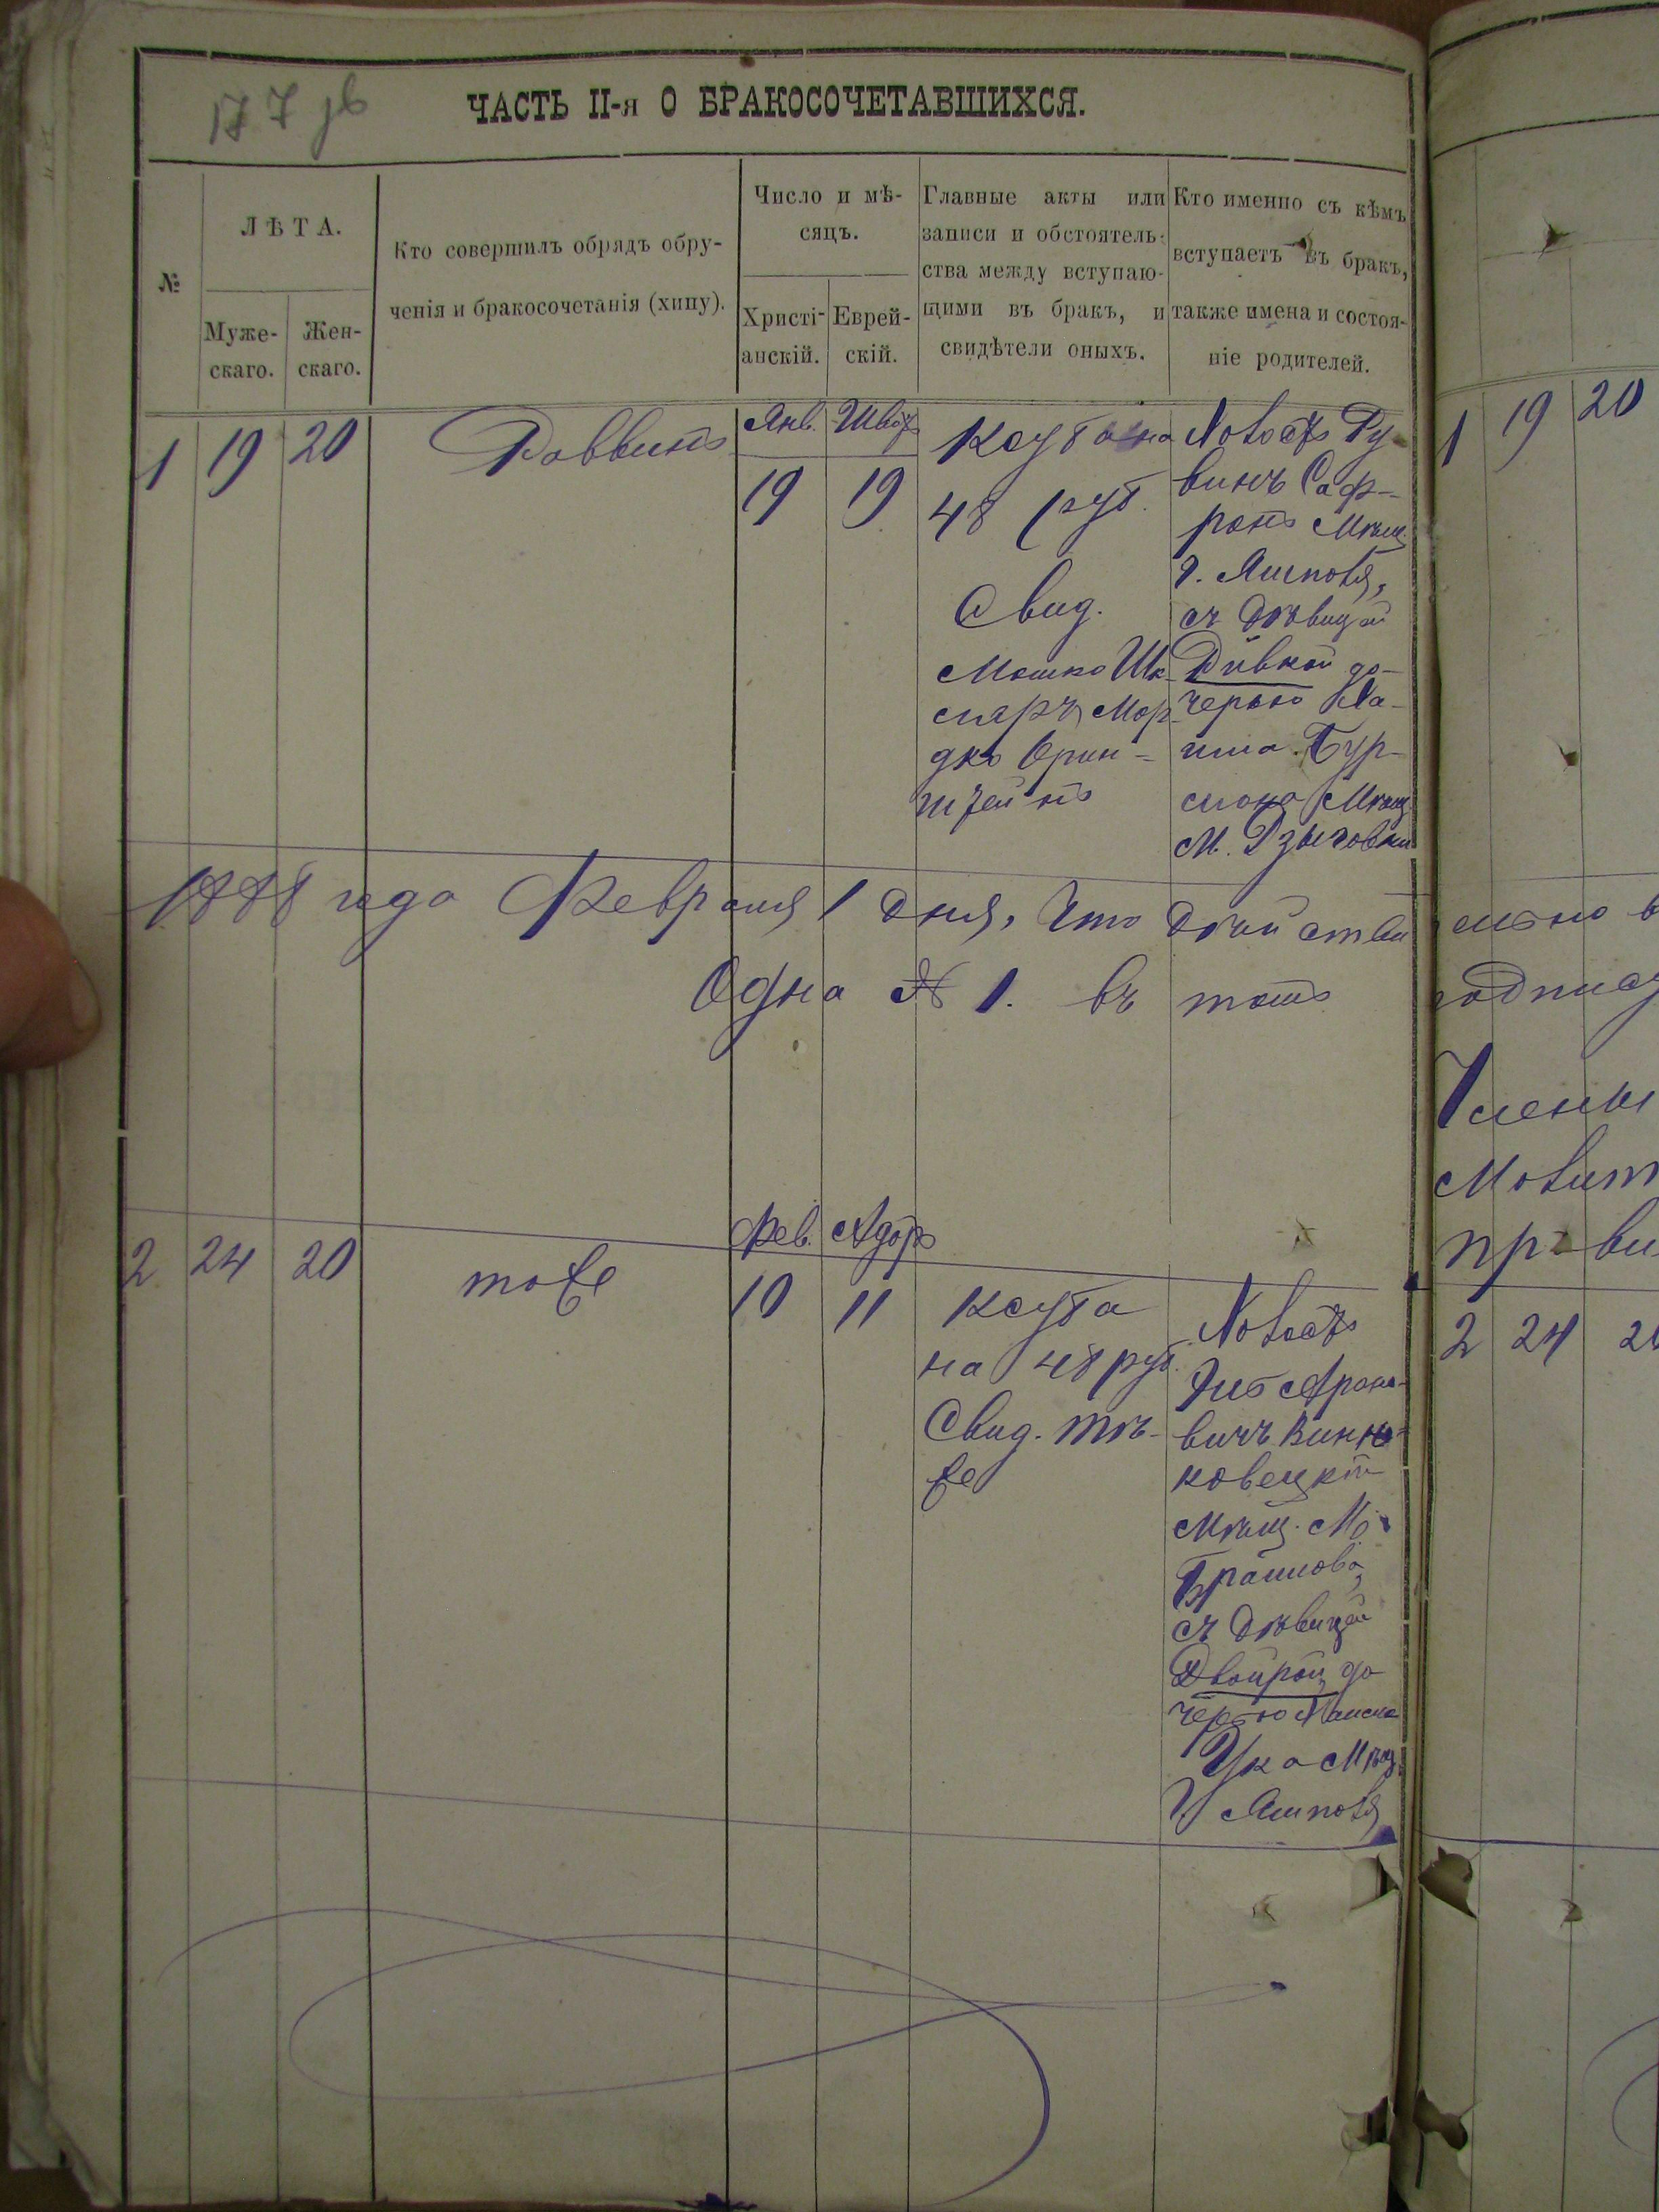 177 об
ЧАСТЬ II-я О БРАКОСОЧЕТАВШИХСЯ.
№
ЛѢТА.
Муже-
скаго.
Жен-
скаго.
Кто совершилъ обрядъ обру-
ченія и бракосочетанія (хипу).
Число и мѣ-
сяцъ.
Христі-
анскій.
Еврей-
скій.
Главные акты или
записи и обстоятель-
ства между вступаю-
щими въ бракъ, и
свидѣтели оныхъ.
Кто именно съ кѣмъ
вступаетъ въ бракъ,
также имена и состоя-
ніе родителей.
1
19
20
Раввинъ
Янв.
Шватъ
19
19
Ксуба на
48 руб.
Свид.
Мошко Шк-
ляръ, Мор-
дко
штейнъ
Холостъ Ру-
винъ Саф-
ронъ Мѣщ.
г. Ямполя,
съ дѣвицей
Ривкой до-
черью Ха-
има
Мѣщ.
М. Дзыговки
1888 года Февраля 1 дня, что действи
Одна № 1. въ томъ
2
24
20
тоже
Фев.
Адаръ
10
11
Ксуба
на 48 руб.
Свид. тѣ-
же
Холостъ
Арано-
вичъ Винни-
ковецкій
Мѣщ. М.
Браилова,
съ дѣвицей
Двойрой до-
черью Хаима
Мѣщ.
г. Ямполя
1
19
20
ельно в
одпису
Члены
2
24